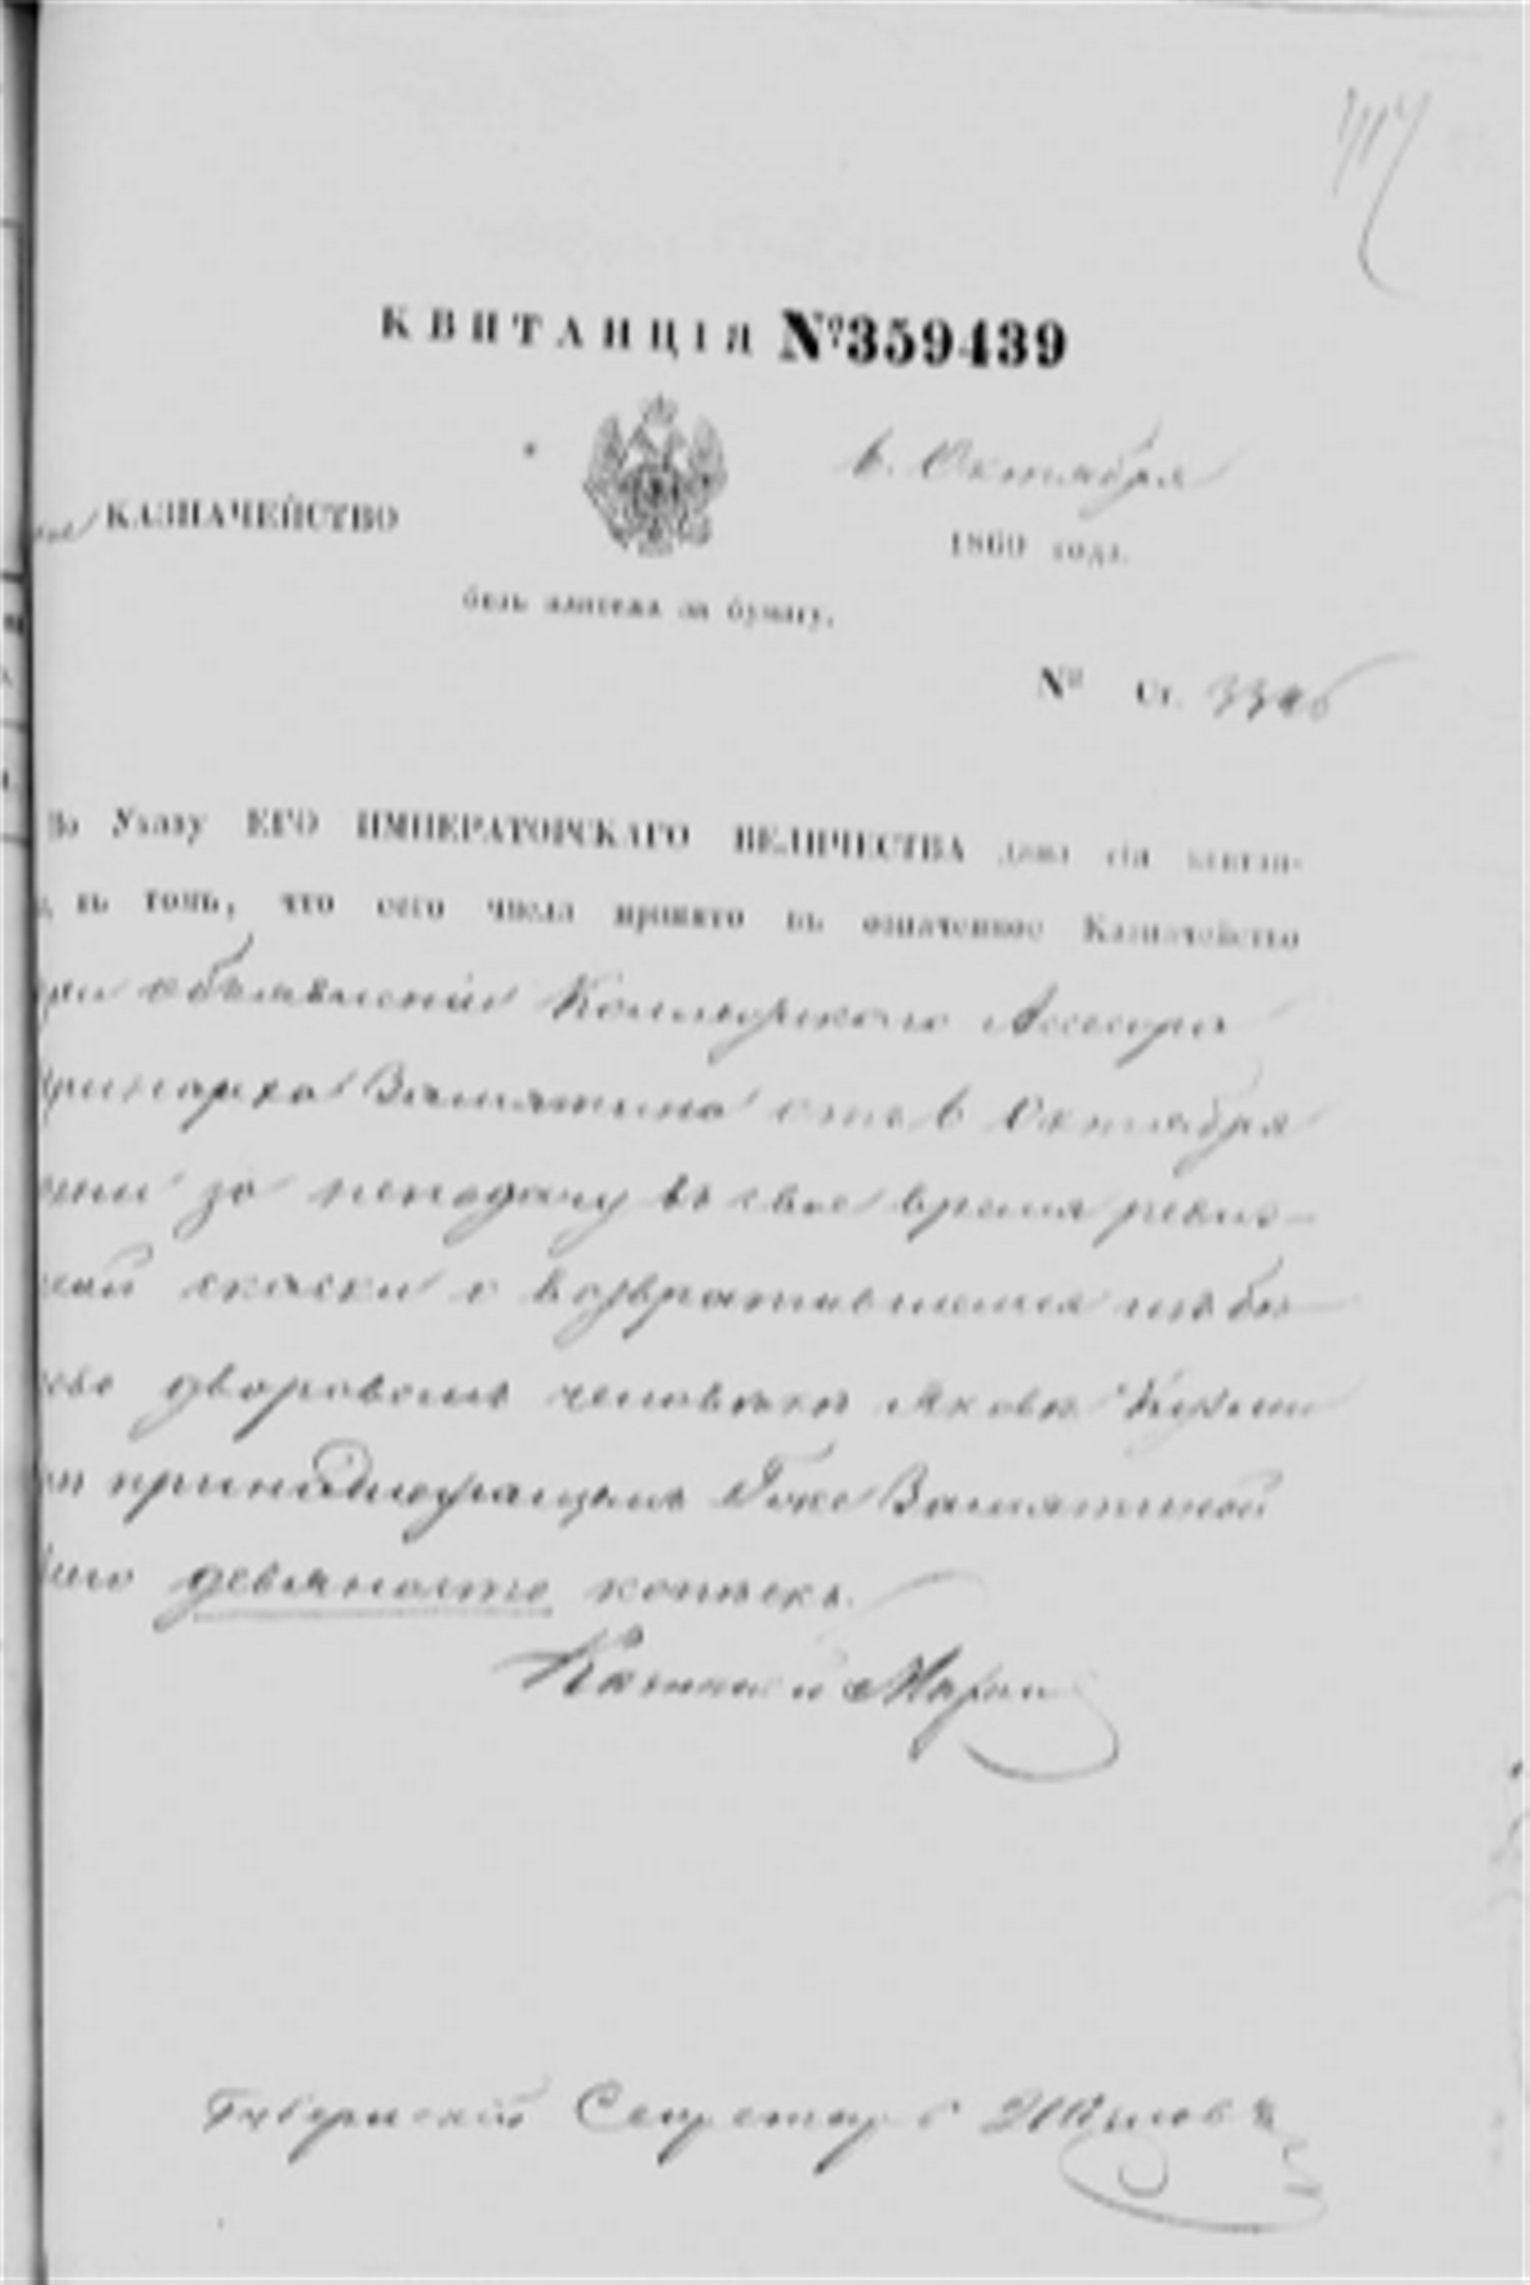 КВИТАНЦІЯ №359439
6. Октября
КАЗНАЧЕЙСТВО
1860 года.
безъ платежа за бумагу.
№ Ст.
По Указу ЕГО ИМПЕРАТОРСКАГО ВЕЛИЧЕСТВА дана сія квитан-
въ томъ, что сего числа принято въ означенное Казначейство
при объявленіи Коллежскаго Ассесора
Замятина отъ 6 Октября
пени за неподачу въ свое время ревиз-
ской скаски о возвратившемся изъ бѣ-
дворовомъ человѣкѣ Яковѣ
принадлежащемъ Г-жѣ Замятиной
всего девяносто копѣекъ.
Губернскій Секретарь